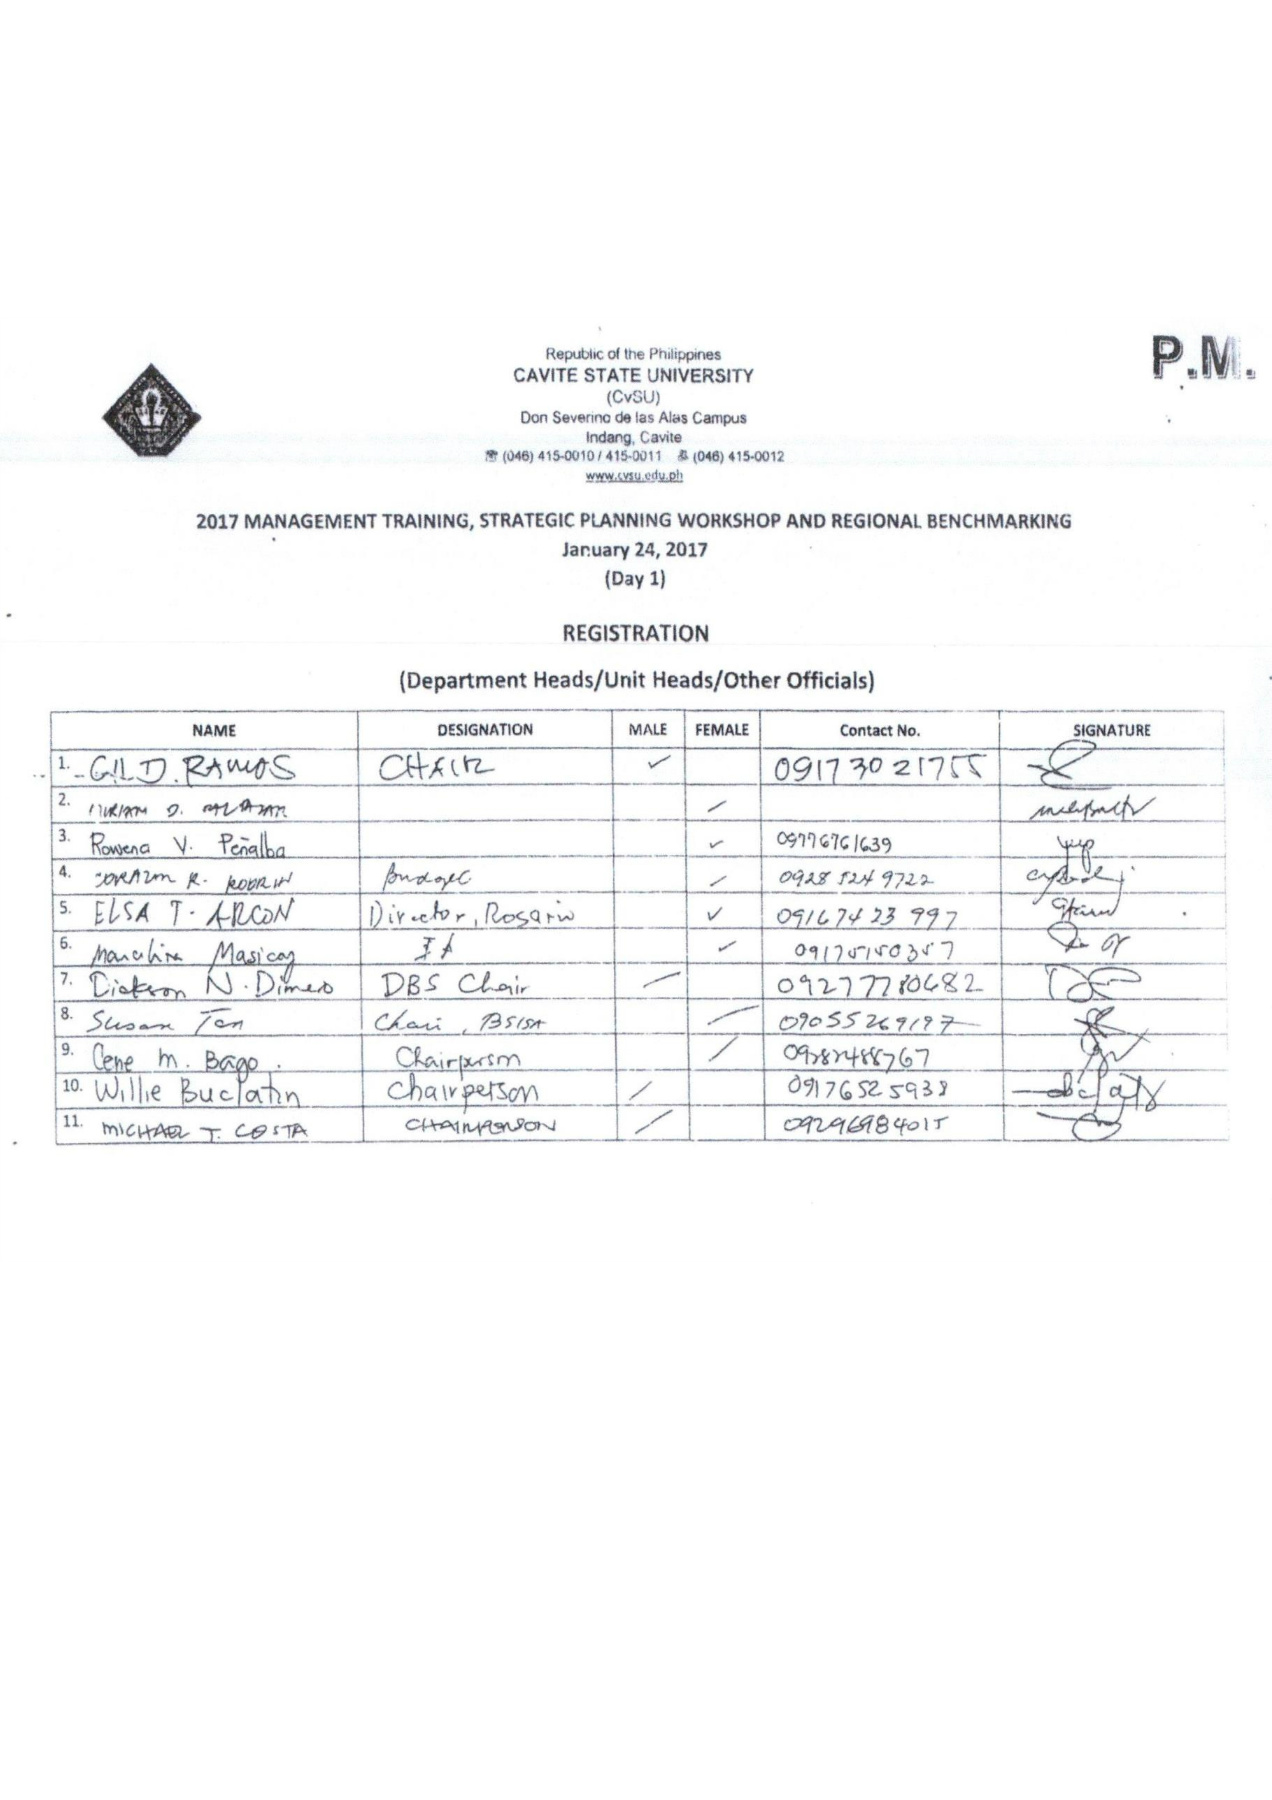 P.M.
Republic of the Philippines
CAVITE STATE UNIVERSITY
(CvSU)
Don Severino de las Alas Campus
Indang, Cavite
☎ (046) 415-0010 / 415-0011 (046) 415-0012
www.cvsu.edu.ph
2017 MANAGEMENT TRAINING, STRATEGIC PLANNING WORKSHOP AND REGIONAL BENCHMARKING
January 24, 2017
(Day 1)
REGISTRATION
(Department Heads/Unit Heads/Other Officials)
NAME DESIGNATION MALE FEMALE Contact No. SIGNATURE
1. GIL D. RAMOS CHAIR ✓ 0917 30 21755
2. D. ✓
3. Rowena V. Peñalba ✓ 09776761639
4. R. Budget ✓ 0928 524 9722
5. ELSA T. ARCON Director, Rosario ✓ 0916 74 23 997
6. Masicog IA ✓ 09175150357
7. Dickson N. Dimero DBS Chair / 09277780682
8. Susan Tan Chair, / 09055269197
9. Cene M. Bago Chairperson / 09282488767
10. Willie Buclatin Chairperson / 0917652 5938
11. MICHAEL T. COSTA CHAIRPERSON / 09296984015